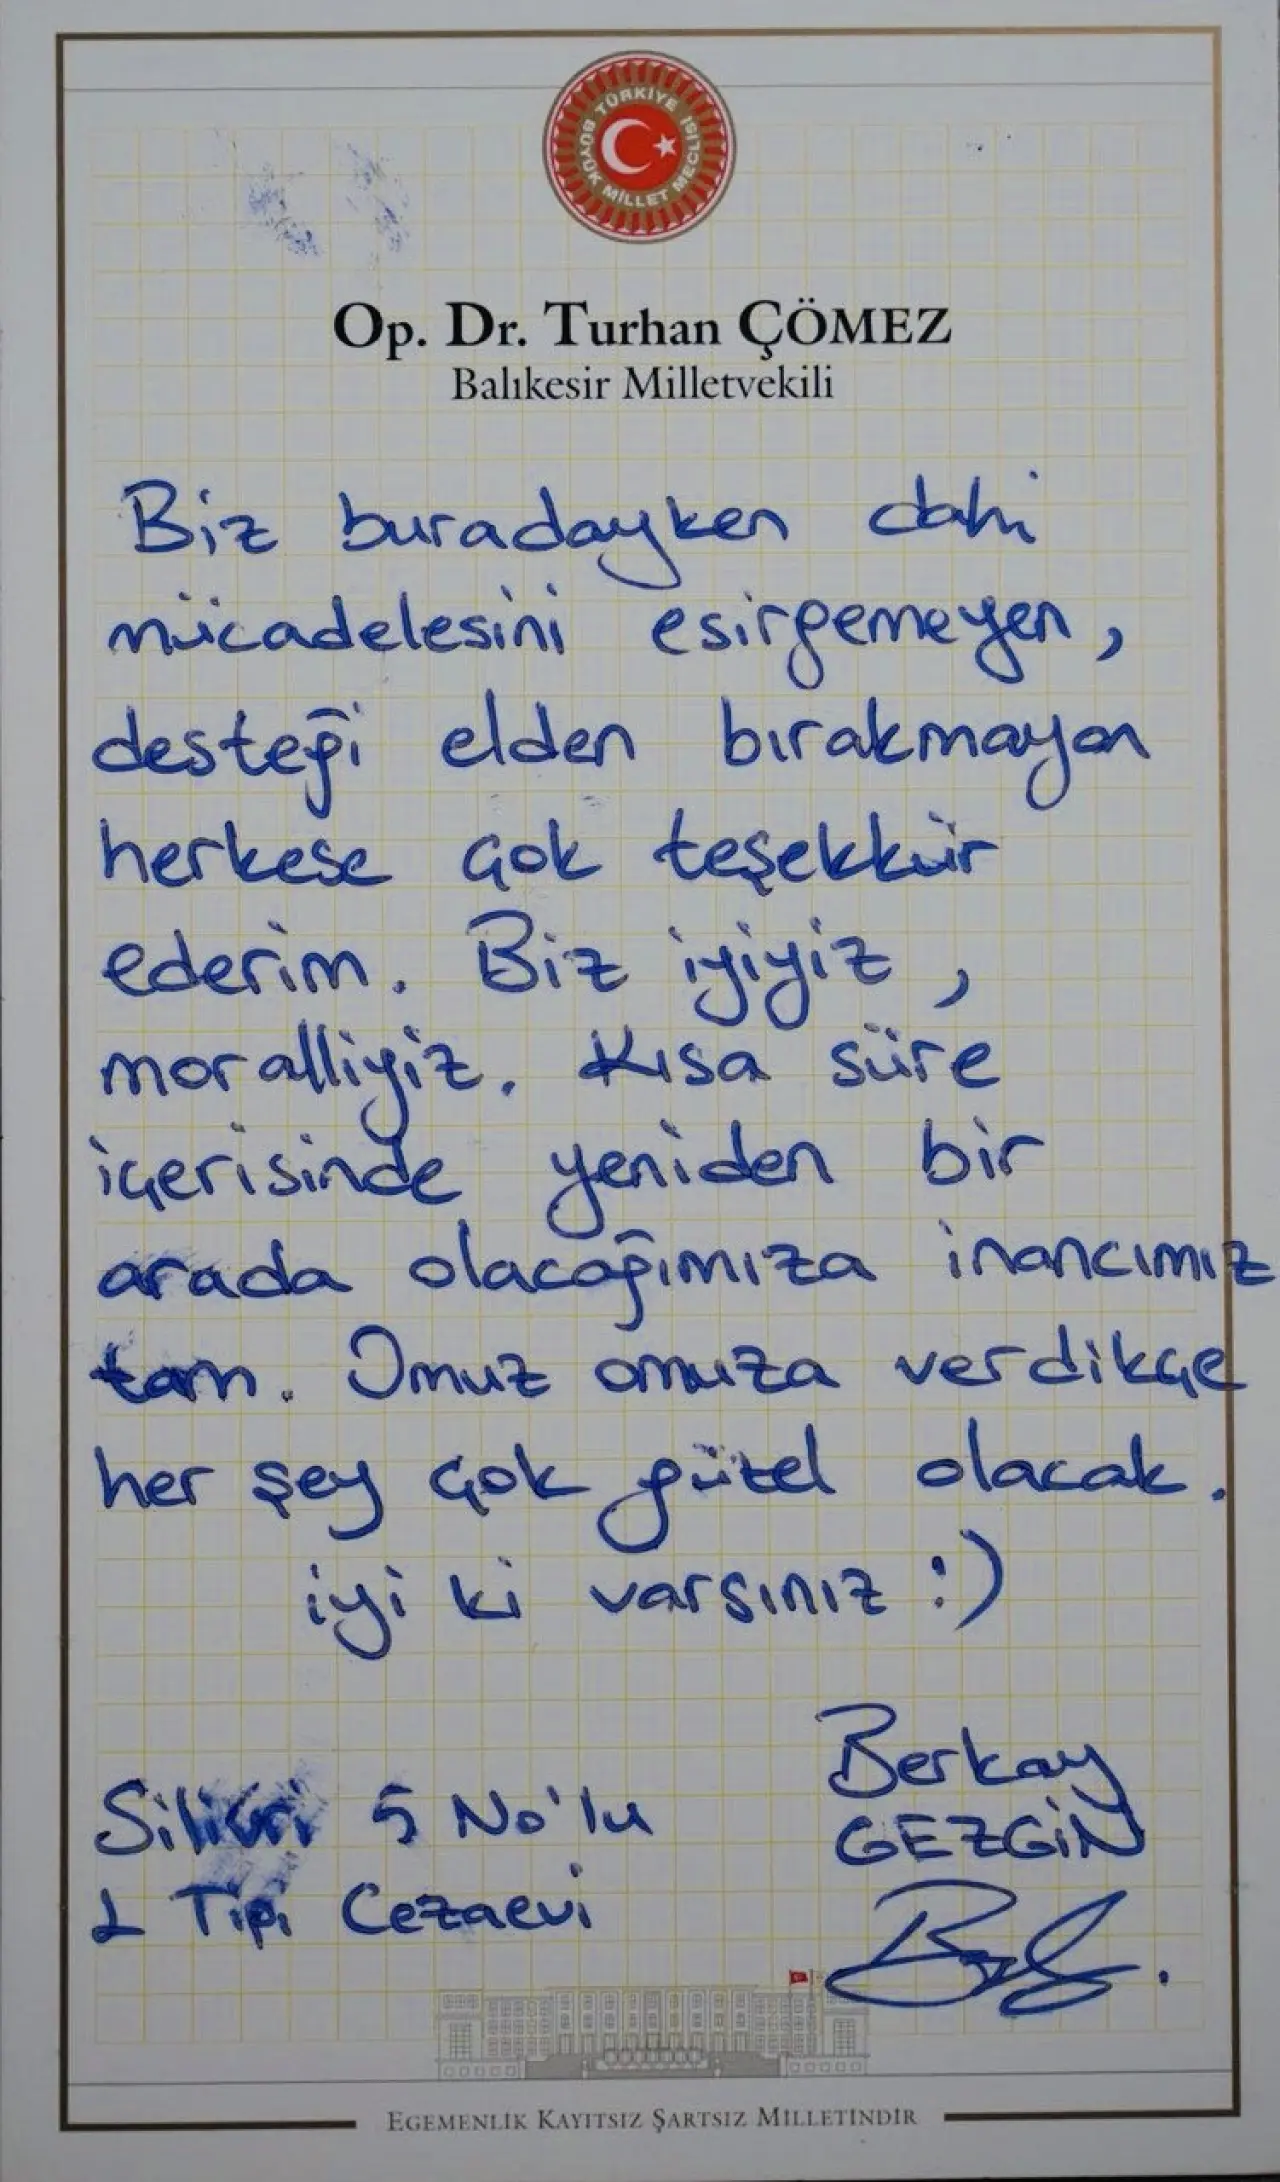 TÜRKİYE BÜYÜK MİLLET MECLİSİ
Op. Dr. Turhan ÇÖMEZ
Balıkesir Milletvekili
Biz buradayken dahi
mücadelesini esirgemeyen,
desteği elden bırakmayan
herkese çok teşekkür
ederim. Biz iyiyiz,
moralliyiz. Kısa süre
içerisinde yeniden bir
arada olacağımıza inancımız
tam. Omuz omuza verdikçe
her şey çok güzel olacak.
iyi ki varsınız :)
Berkay
GEZGİN
Silivri 5 No'lu
L Tipi Cezaevi
EGEMENLİK KAYITSIZ ŞARTSIZ MİLLETİNDİR